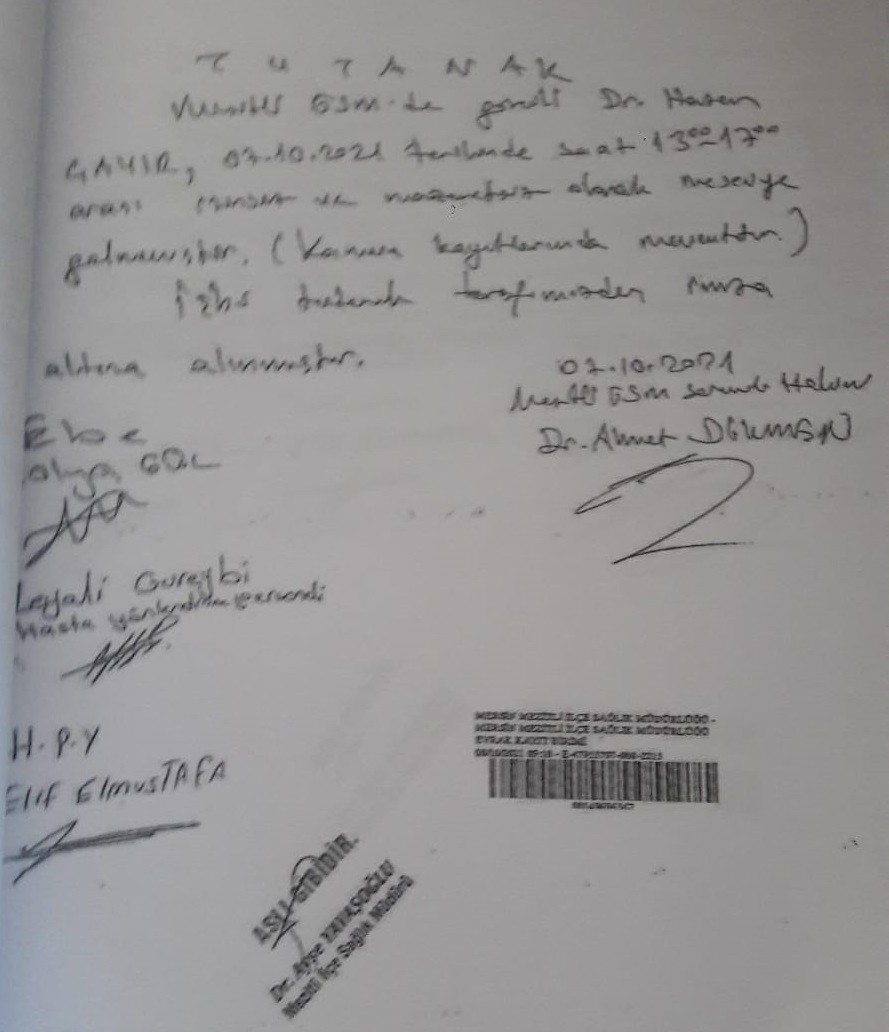 TUTANAK
GSM-de görevli Dr. Hasan
ÇAYIR, 07.10.2021 tarihinde saat 13⁰⁰-17⁰⁰
arası izinsiz ve mazeretsiz olarak mesaiye
gelmemiştir. (Kamera kayıtlarında mevcuttur.)
İşbu tutanak tarafımızdan imza
altına alınmıştır.
07.10.2021
GSM Sorumlu Hekim
Dr. Ahmet
Ebe
GÖL
Leyali Gureybi
Hasta yönlendirme personeli
H.P.Y
Elif ElmusTAFA
MERSİN MEZİTLİ İLÇE SAĞLIK MÜDÜRLÜĞÜ -
MERSİN MEZİTLİ İLÇE SAĞLIK MÜDÜRLÜĞÜ
EVRAK KAYIT BİRİMİ
ASLI GİBİDİR.
Dr. Ayşe YAVAŞOĞLU
Mezitli İlçe Sağlık Müdürü